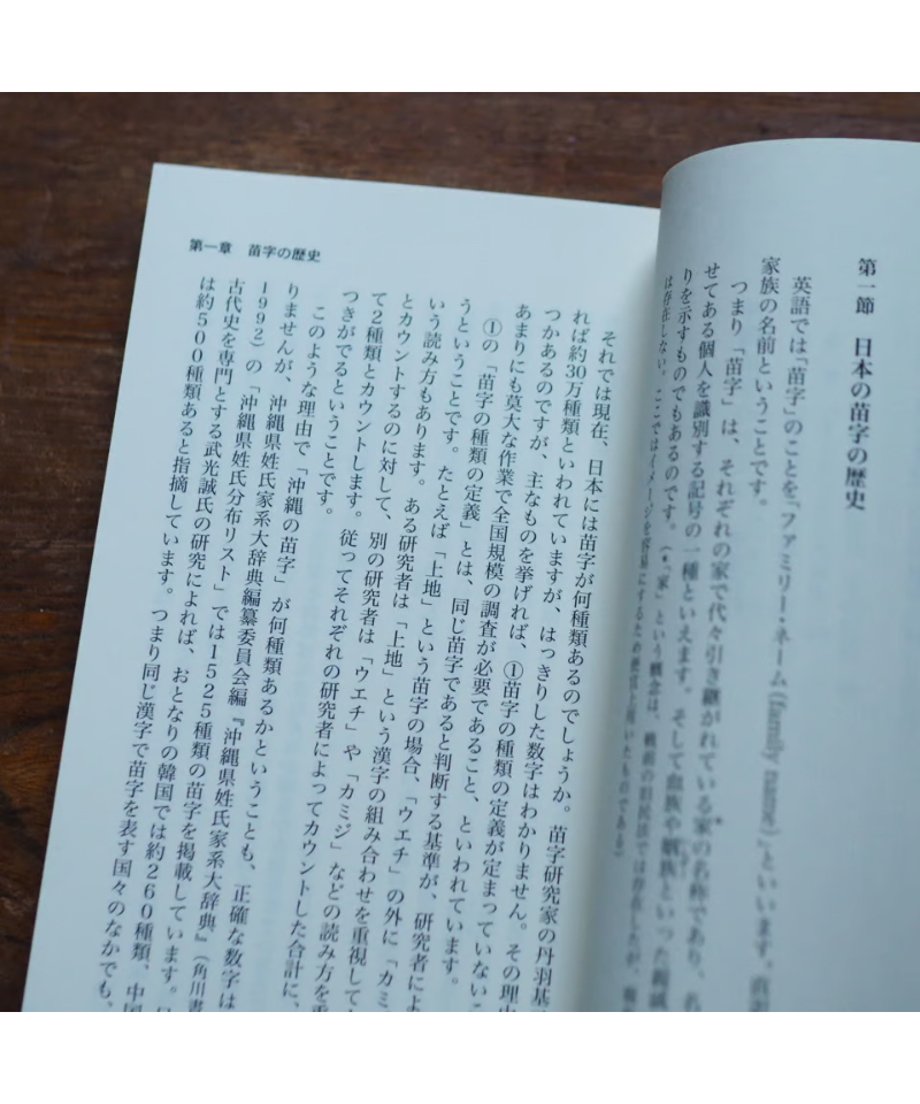 第一節 日本の苗字の歴史
英語では「苗字」のことを「ファミリー・ネーム(family name)」といいます。
家族の名前ということです。
つまり「苗字」は、それぞれの家で代々引き継がれている家の名称であり、名
せてある個人を識別する記号の一種といえます。そして血族や姻族といった
りを示すものでもあるのです。(*「家」という概念は、戦前の旧民法では存在したが、
は存在しない。ここではイメージを容易にするため便宜上用いたものである)
第一章 苗字の歴史
それでは現在、日本には苗字が何種類あるのでしょうか。苗字研究家の丹羽基
れば約30万種類といわれていますが、はっきりした数字はわかりません。その理由
つかあるのですが、主なものを挙げれば、①苗字の種類の定義が定まっていないこ
あまりにも莫大な作業で全国規模の調査が必要であること、といわれています。
①の「苗字の種類の定義」とは、同じ苗字であると判断する基準が、研究者によ
うということです。たとえば「上地」という苗字の場合、「ウエチ」の外に「カミ
いう読み方もあります。ある研究者は「上地」という漢字の組み合わせを重視して
とカウントするのに対して、別の研究者は「ウエチ」や「カミジ」などの読み方を重
て2種類とカウントします。従ってそれぞれの研究者によってカウントした合計に、
つきがでるということです。
このような理由で「沖縄の苗字」が何種類あるかということも、正確な数字は
りませんが、沖縄県姓氏家系大辞典編纂委員会編『沖縄県姓氏家系大辞典』(角川書
1992)の「沖縄県姓氏分布リスト」では1525種類の苗字を掲載しています。
古代史を専門とする武光誠氏の研究によれば、おとなりの韓国では約260種類、中国
は約500種類あると指摘しています。つまり同じ漢字で苗字を表す国々のなかでも、